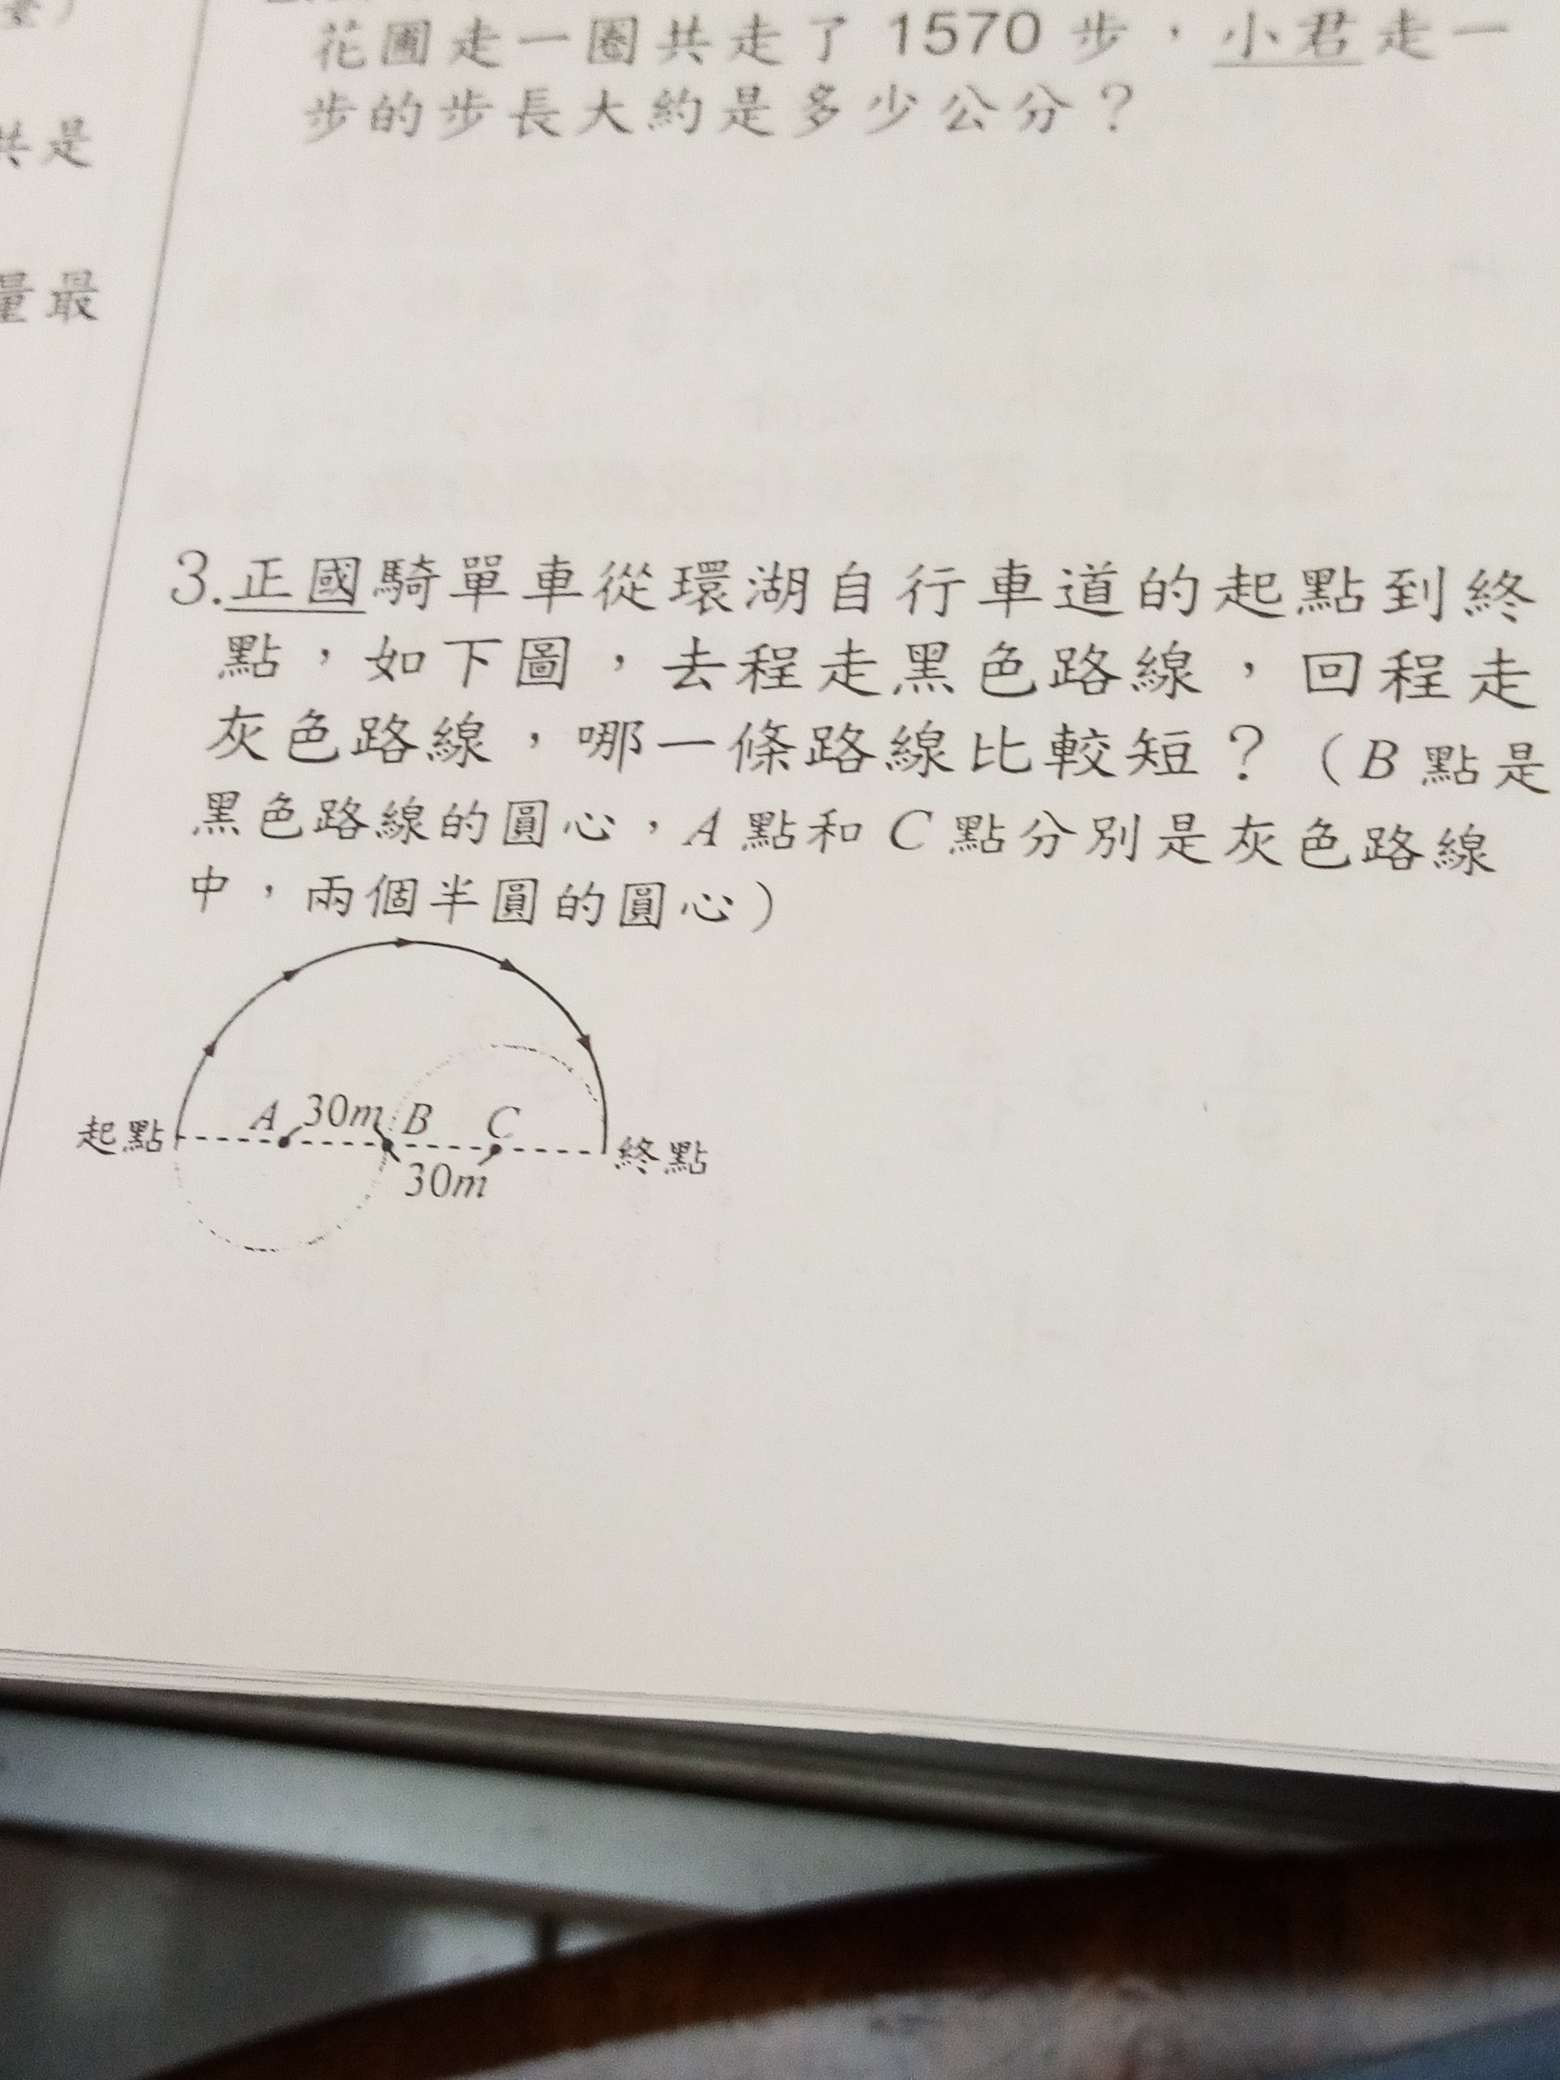 共是
量最
花圃走一圈共走了 1570 步，小君走一
步的步長大約是多少公分？
3.正國騎單車從環湖自行車道的起點到終
點，如下圖，去程走黑色路線，回程走
灰色路線，哪一條路線比較短？（B 點是
黑色路線的圓心，A 點和 C 點分別是灰色路線
中，兩個半圓的圓心）
起點 A 30m B C 終點
30m